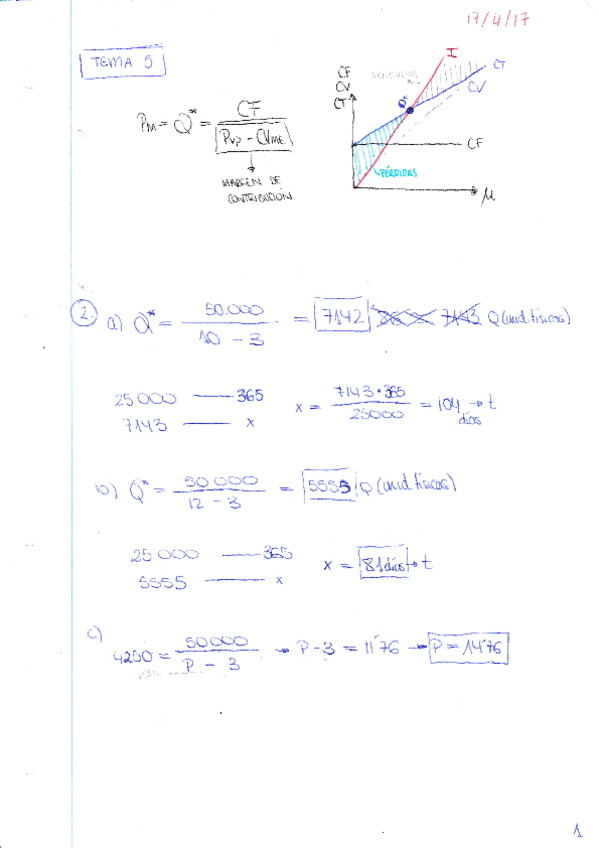 17/4/17
TEMA 5
PM = Q* = CT / (PVP - CVME)
MARGEN DE
CONTRIBUCIÓN
CT CV CF
I
CT
CV
Q*
CF
PÉRDIDAS
μ
2. a) Q* = 50.000 / (10 - 3) = 7142 7143 Q (unid. físicas)
25000 —— 365
7143 —— x
x = 7143 · 365 / 25000 = 104 días → t
b) Q* = 50000 / (12 - 3) = 5555 Q (unid. físicas)
25000 —— 365
5555 —— x
x = 81 días → t
c) 4250 = 50000 / (P - 3) → P - 3 = 11'76 → P = 14'76
1